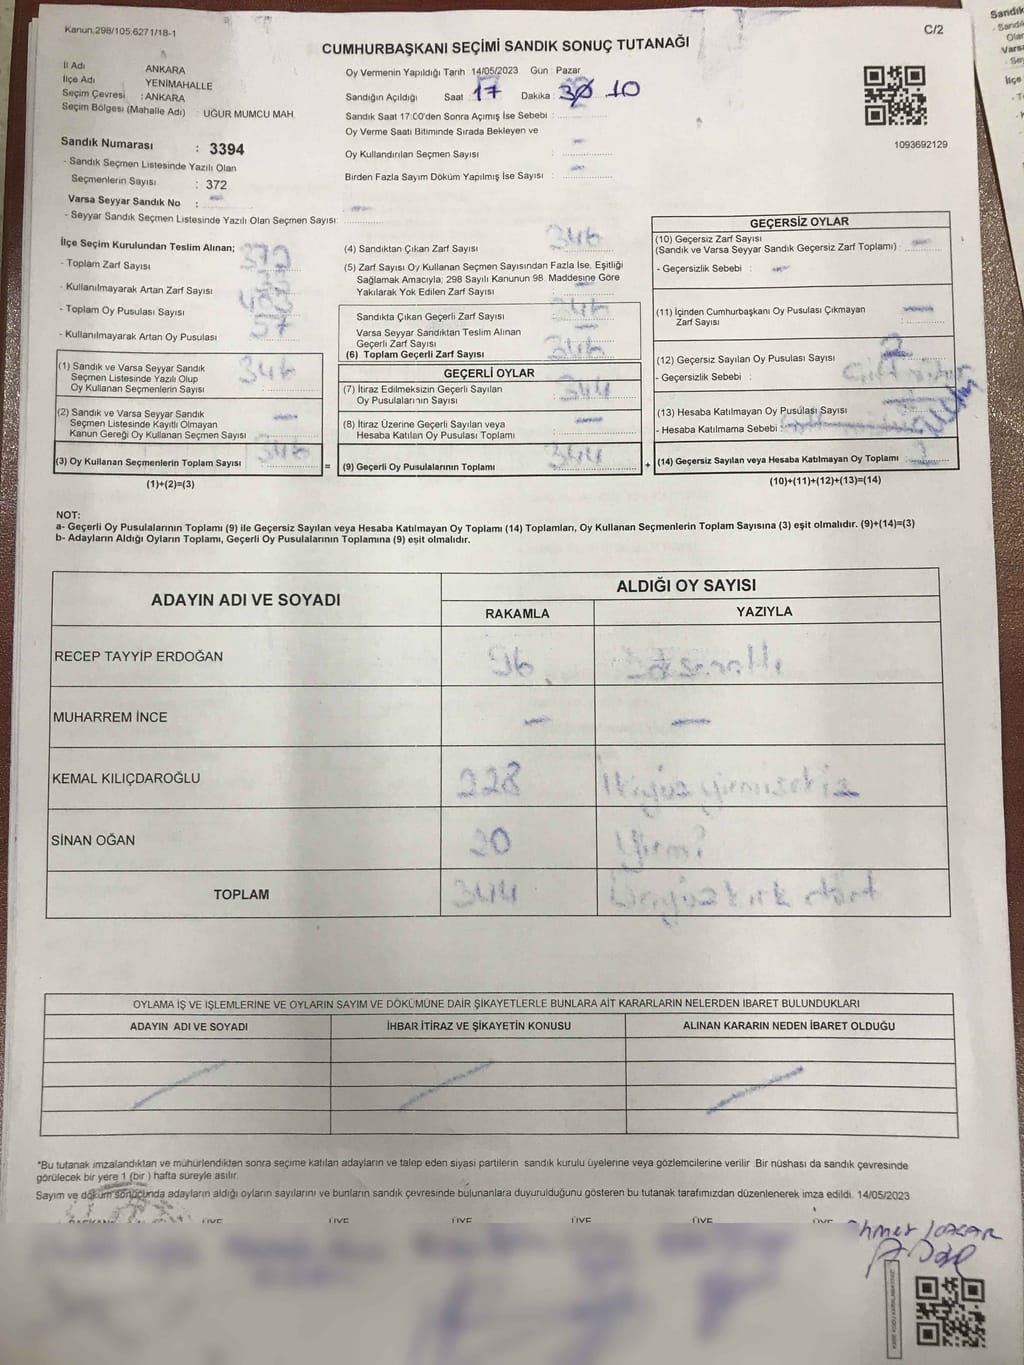 Kanun.298/105.6271/18-1
C/2
CUMHURBAŞKANI SEÇİMİ SANDIK SONUÇ TUTANAĞI
İl Adı ANKARA
İlçe Adı YENİMAHALLE
Seçim Çevresi : ANKARA
Seçim Bölgesi (Mahalle Adı) : UĞUR MUMCU MAH.
Oy Vermenin Yapıldığı Tarih 14/05/2023 Gün : Pazar
Sandığın Açıldığı Saat 17 Dakika : 30 10
Sandık Saat 17:00'den Sonra Açımış İse Sebebi :
Oy Verme Saati Bitiminde Sırada Bekleyen ve
Oy Kullandırılan Seçmen Sayısı : -
Birden Fazla Sayım Döküm Yapılmış İse Sayısı : -
1093692129
Sandık Numarası : 3394
- Sandık Seçmen Listesinde Yazılı Olan
Seçmenlerin Sayısı : 372
Varsa Seyyar Sandık No : -
- Seyyar Sandık Seçmen Listesinde Yazılı Olan Seçmen Sayısı: -
İlçe Seçim Kurulundan Teslim Alınan;
- Toplam Zarf Sayısı
- Kullanılmayarak Artan Zarf Sayısı
- Toplam Oy Pusulası Sayısı
- Kullanılmayarak Artan Oy Pusulası 57
(1) Sandık ve Varsa Seyyar Sandık
Seçmen Listesinde Yazılı Olup
Oy Kullanan Seçmenlerin Sayısı 346
(2) Sandık ve Varsa Seyyar Sandık
Seçmen Listesinde Kayıtlı Olmayan
Kanun Gereği Oy Kullanan Seçmen Sayısı -
(3) Oy Kullanan Seçmenlerin Toplam Sayısı 346
(1)+(2)=(3)
(4) Sandıktan Çıkan Zarf Sayısı 346
(5) Zarf Sayısı Oy Kullanan Seçmen Sayısından Fazla İse, Eşitliği
Sağlamak Amacıyla; 298 Sayılı Kanunun 98. Maddesine Göre
Yakılarak Yok Edilen Zarf Sayısı -
Sandıkta Çıkan Geçerli Zarf Sayısı 346
Varsa Seyyar Sandıktan Teslim Alınan
Geçerli Zarf Sayısı -
(6) Toplam Geçerli Zarf Sayısı 346
GEÇERLİ OYLAR
(7) İtiraz Edilmeksizin Geçerli Sayılan
Oy Pusulalarının Sayısı 344
(8) İtiraz Üzerine Geçerli Sayılan veya
Hesaba Katılan Oy Pusulası Toplamı -
= (9) Geçerli Oy Pusulalarının Toplamı 344 +
GEÇERSİZ OYLAR
(10) Geçersiz Zarf Sayısı
(Sandık ve Varsa Seyyar Sandık Geçersiz Zarf Toplamı) : -
- Geçersizlik Sebebi : -
(11) İçinden Cumhurbaşkanı Oy Pusulası Çıkmayan
Zarf Sayısı -
(12) Geçersiz Sayılan Oy Pusulası Sayısı 2
- Geçersizlik Sebebi :
(13) Hesaba Katılmayan Oy Pusulası Sayısı
- Hesaba Katılmama Sebebi :
(14) Geçersiz Sayılan veya Hesaba Katılmayan Oy Toplamı :
(10)+(11)+(12)+(13)=(14)
NOT:
a- Geçerli Oy Pusulalarının Toplamı (9) ile Geçersiz Sayılan veya Hesaba Katılmayan Oy Toplamı (14) Toplamları, Oy Kullanan Seçmenlerin Toplam Sayısına (3) eşit olmalıdır. (9)+(14)=(3)
b- Adayların Aldığı Oyların Toplamı, Geçerli Oy Pusulalarının Toplamına (9) eşit olmalıdır.
ADAYIN ADI VE SOYADI
ALDIĞI OY SAYISI
RAKAMLA YAZIYLA
RECEP TAYYİP ERDOĞAN 96
MUHARREM İNCE - -
KEMAL KILIÇDAROĞLU 228 İkiyüz yirmisekiz
SİNAN OĞAN 20 Yirmi
TOPLAM 344 Üçyüz kırk dört
OYLAMA İŞ VE İŞLEMLERİNE VE OYLARIN SAYIM VE DÖKÜMÜNE DAİR ŞİKAYETLERLE BUNLARA AİT KARARLARIN NELERDEN İBARET BULUNDUKLARI
ADAYIN ADI VE SOYADI İHBAR İTİRAZ VE ŞİKAYETİN KONUSU ALINAN KARARIN NEDEN İBARET OLDUĞU
*Bu tutanak imzalandıktan ve mühürlendikten sonra seçime katılan adayların ve talep eden siyasi partilerin sandık kurulu üyelerine veya gözlemcilerine verilir. Bir nüshası da sandık çevresinde
görülecek bir yere 1 (bir ) hafta süreyle asılır.
Sayım ve döküm sonucunda adayların aldığı oyların sayılarını ve bunların sandık çevresinde bulunanlara duyurulduğunu gösteren bu tutanak tarafımızdan düzenlenerek imza edildi. 14/05/2023
BAŞKAN ÜYE ÜYE ÜYE ÜYE ÜYE ÜYE